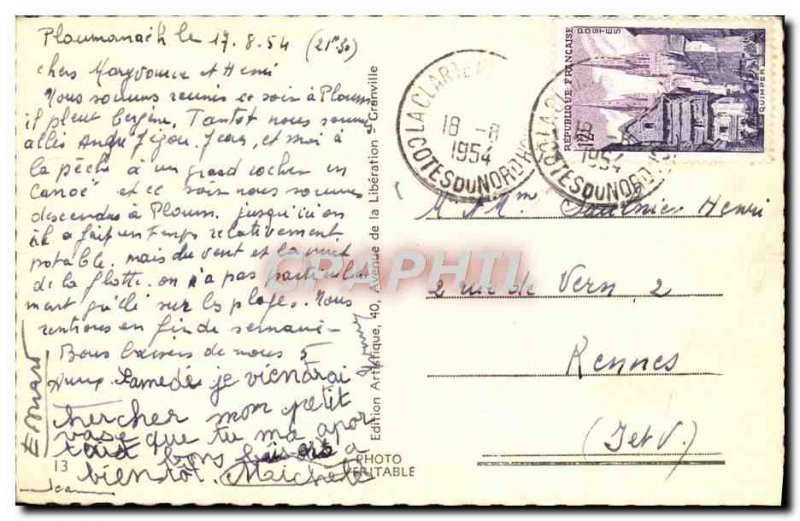 Ploumanach le 17.8.54 (21h30)
chers et Henri
Nous sommes reunis ce soir à Ploum
il pleut . Tantot nous sommes
allés André Jean et moi à
la pêche à un grand rocher en
Canoë et ce soir nous sommes
descendus à Ploum. jusqu'ici on
a fait un temps relativement
potable. mais du vent et la nuit
de la flotte. on n'a pas particulai
ment sur les plages. Nous
rentrons en fin de semaine -
Bons baisers de nous 5
Samedi je viendrai
chercher mon petit
vase que tu ma apor
tait bons baisers a
bientôt. Maichele
13
Edition Artistique, 40, Avenue de la Libération - Granville
PHOTO
VERITABLE
LA CLARTE
18 - 8
1954
COTES DU NORD
RÉPUBLIQUE FRANÇAISE
POSTES
QUIMPER
M & Mme Henri
2 rue de Vern 2
Rennes
(I et V.)
CPAPHIL